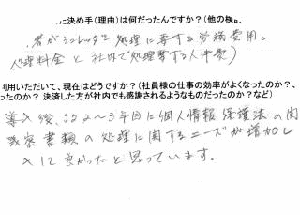 決め手(理由)は何だったんですか?(他の様
処理に要する労務費用
処理料金と社内で処理要する人件費)
利用いただいて、現在はどうですか?(社員様の仕事の効率がよくなったのか?、
ったのか? 決済した方が社内でも感謝されるようなものだったのか?など)
導入後、は2~3年目に個人情報保護法の関
書類の処理に関するニーズが増加し
入して良かったと思っています。